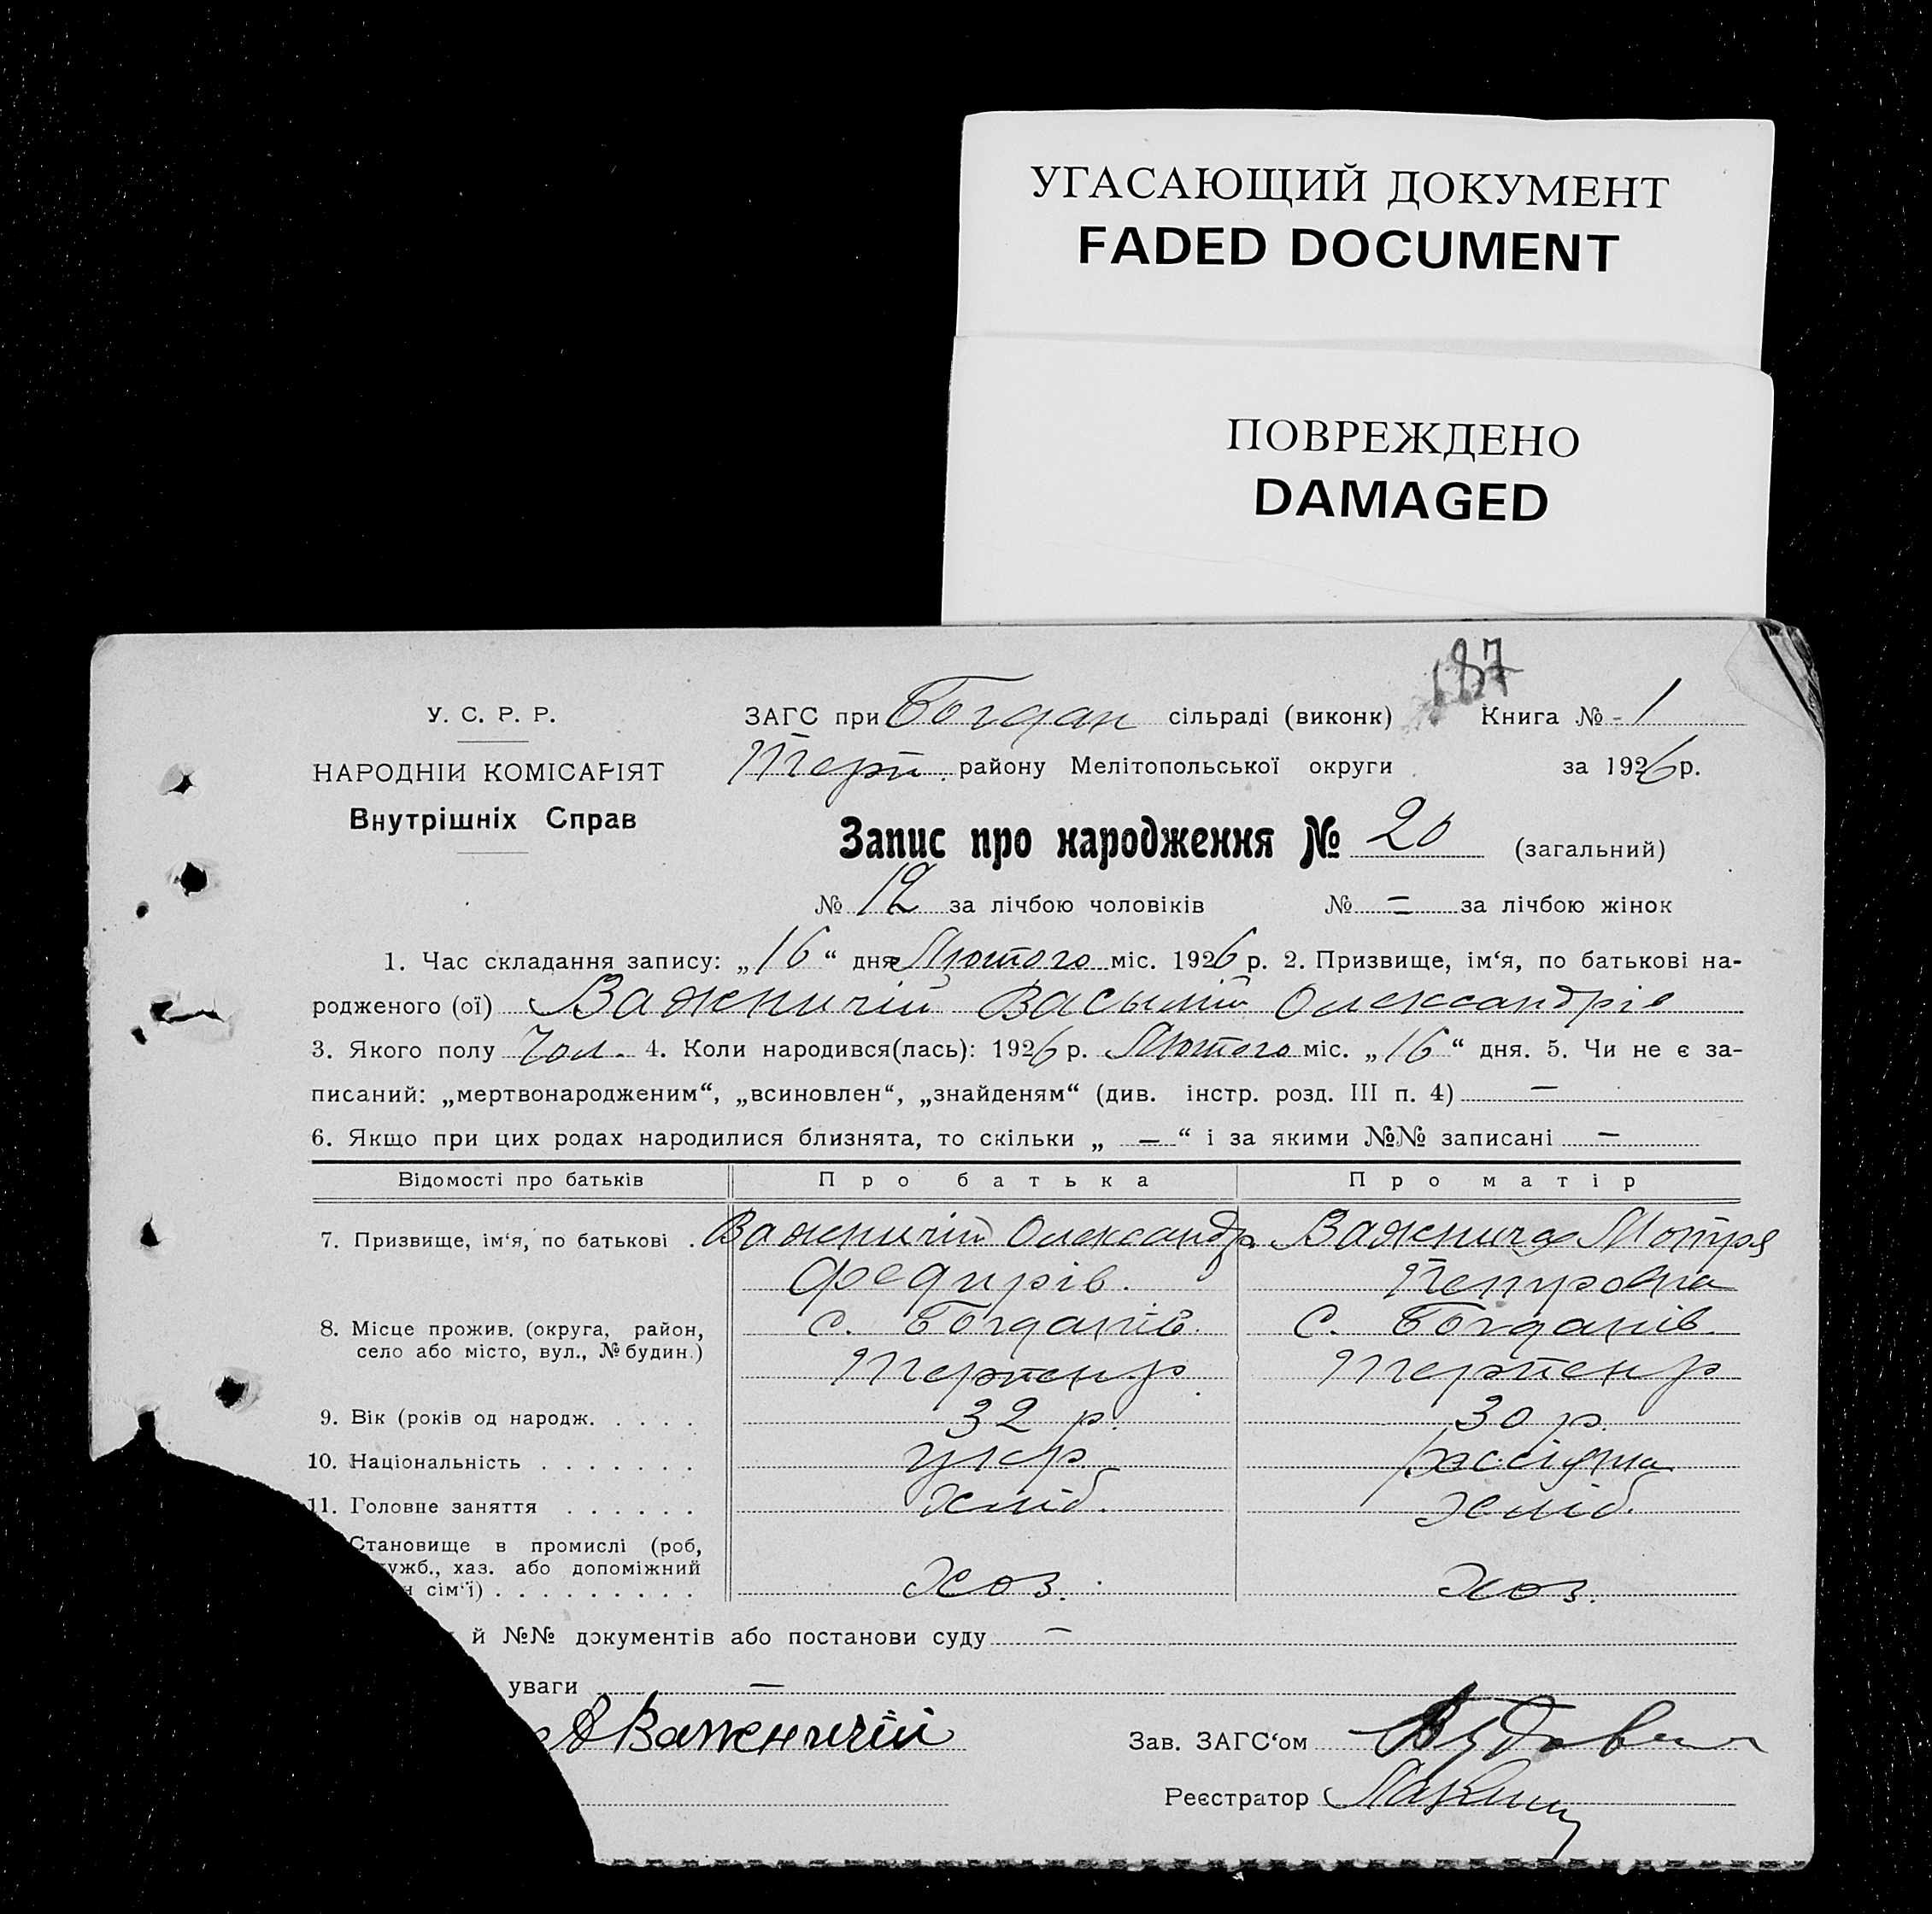 УГАСАЮЩИЙ ДОКУМЕНТ
FADED DOCUMENT
ПОВРЕЖДЕНО
DAMAGED
187
У. С. Р. Р.
НАРОДНІЙ КОМІСАРІЯТ
Внутрішніх Справ
ЗАГС при Богдан сільраді (виконк) Книга № 1
Терп. району Мелітопольської округи за 1926 р.
Запис про народження № 20 (загальний)
№ 12 за лічбою чоловіків № – за лічбою жінок
1. Час складання запису: „16“ дня Лютого міс. 1926 р. 2. Призвище, ім‘я, по батькові на-
родженого (ої) Важничій Васылій Олександрів
3. Якого полу Чол. 4. Коли народився(лась): 1926 р. Лютого міс. „16“ дня. 5. Чи не є за-
писаний: „мертвонародженим“, „всиновлен“, „знайденям“ (див. інстр. розд. III п. 4) –
6. Якщо при цих родах народилися близнята, то скільки „ – “ і за якими №№ записані –
Відомості про батьків Про батька Про матір
7. Призвище, ім‘я, по батькові . Важничій Олександр Важнича Мотря
Федирів. Петровна
8. Місце прожив. (округа, район, с. Богданів. с. Богданів.
село або місто, вул., № будин.)
Терпен. р Терпен р
9. Вік (років од народж. . . . . 32 р. 30 р.
10. Національність . . . . . . . укр.
11. Головне заняття . . . . . . хліб. хліб.
Становище в промислі (роб,
ужб., хаз. або допоміжний
н сім‘ї) . . . . . . . . . хоз. хоз.
й №№ документів або постанови суду –
уваги –
А Важничій Зав. ЗАГС‘ом
Реєстратор